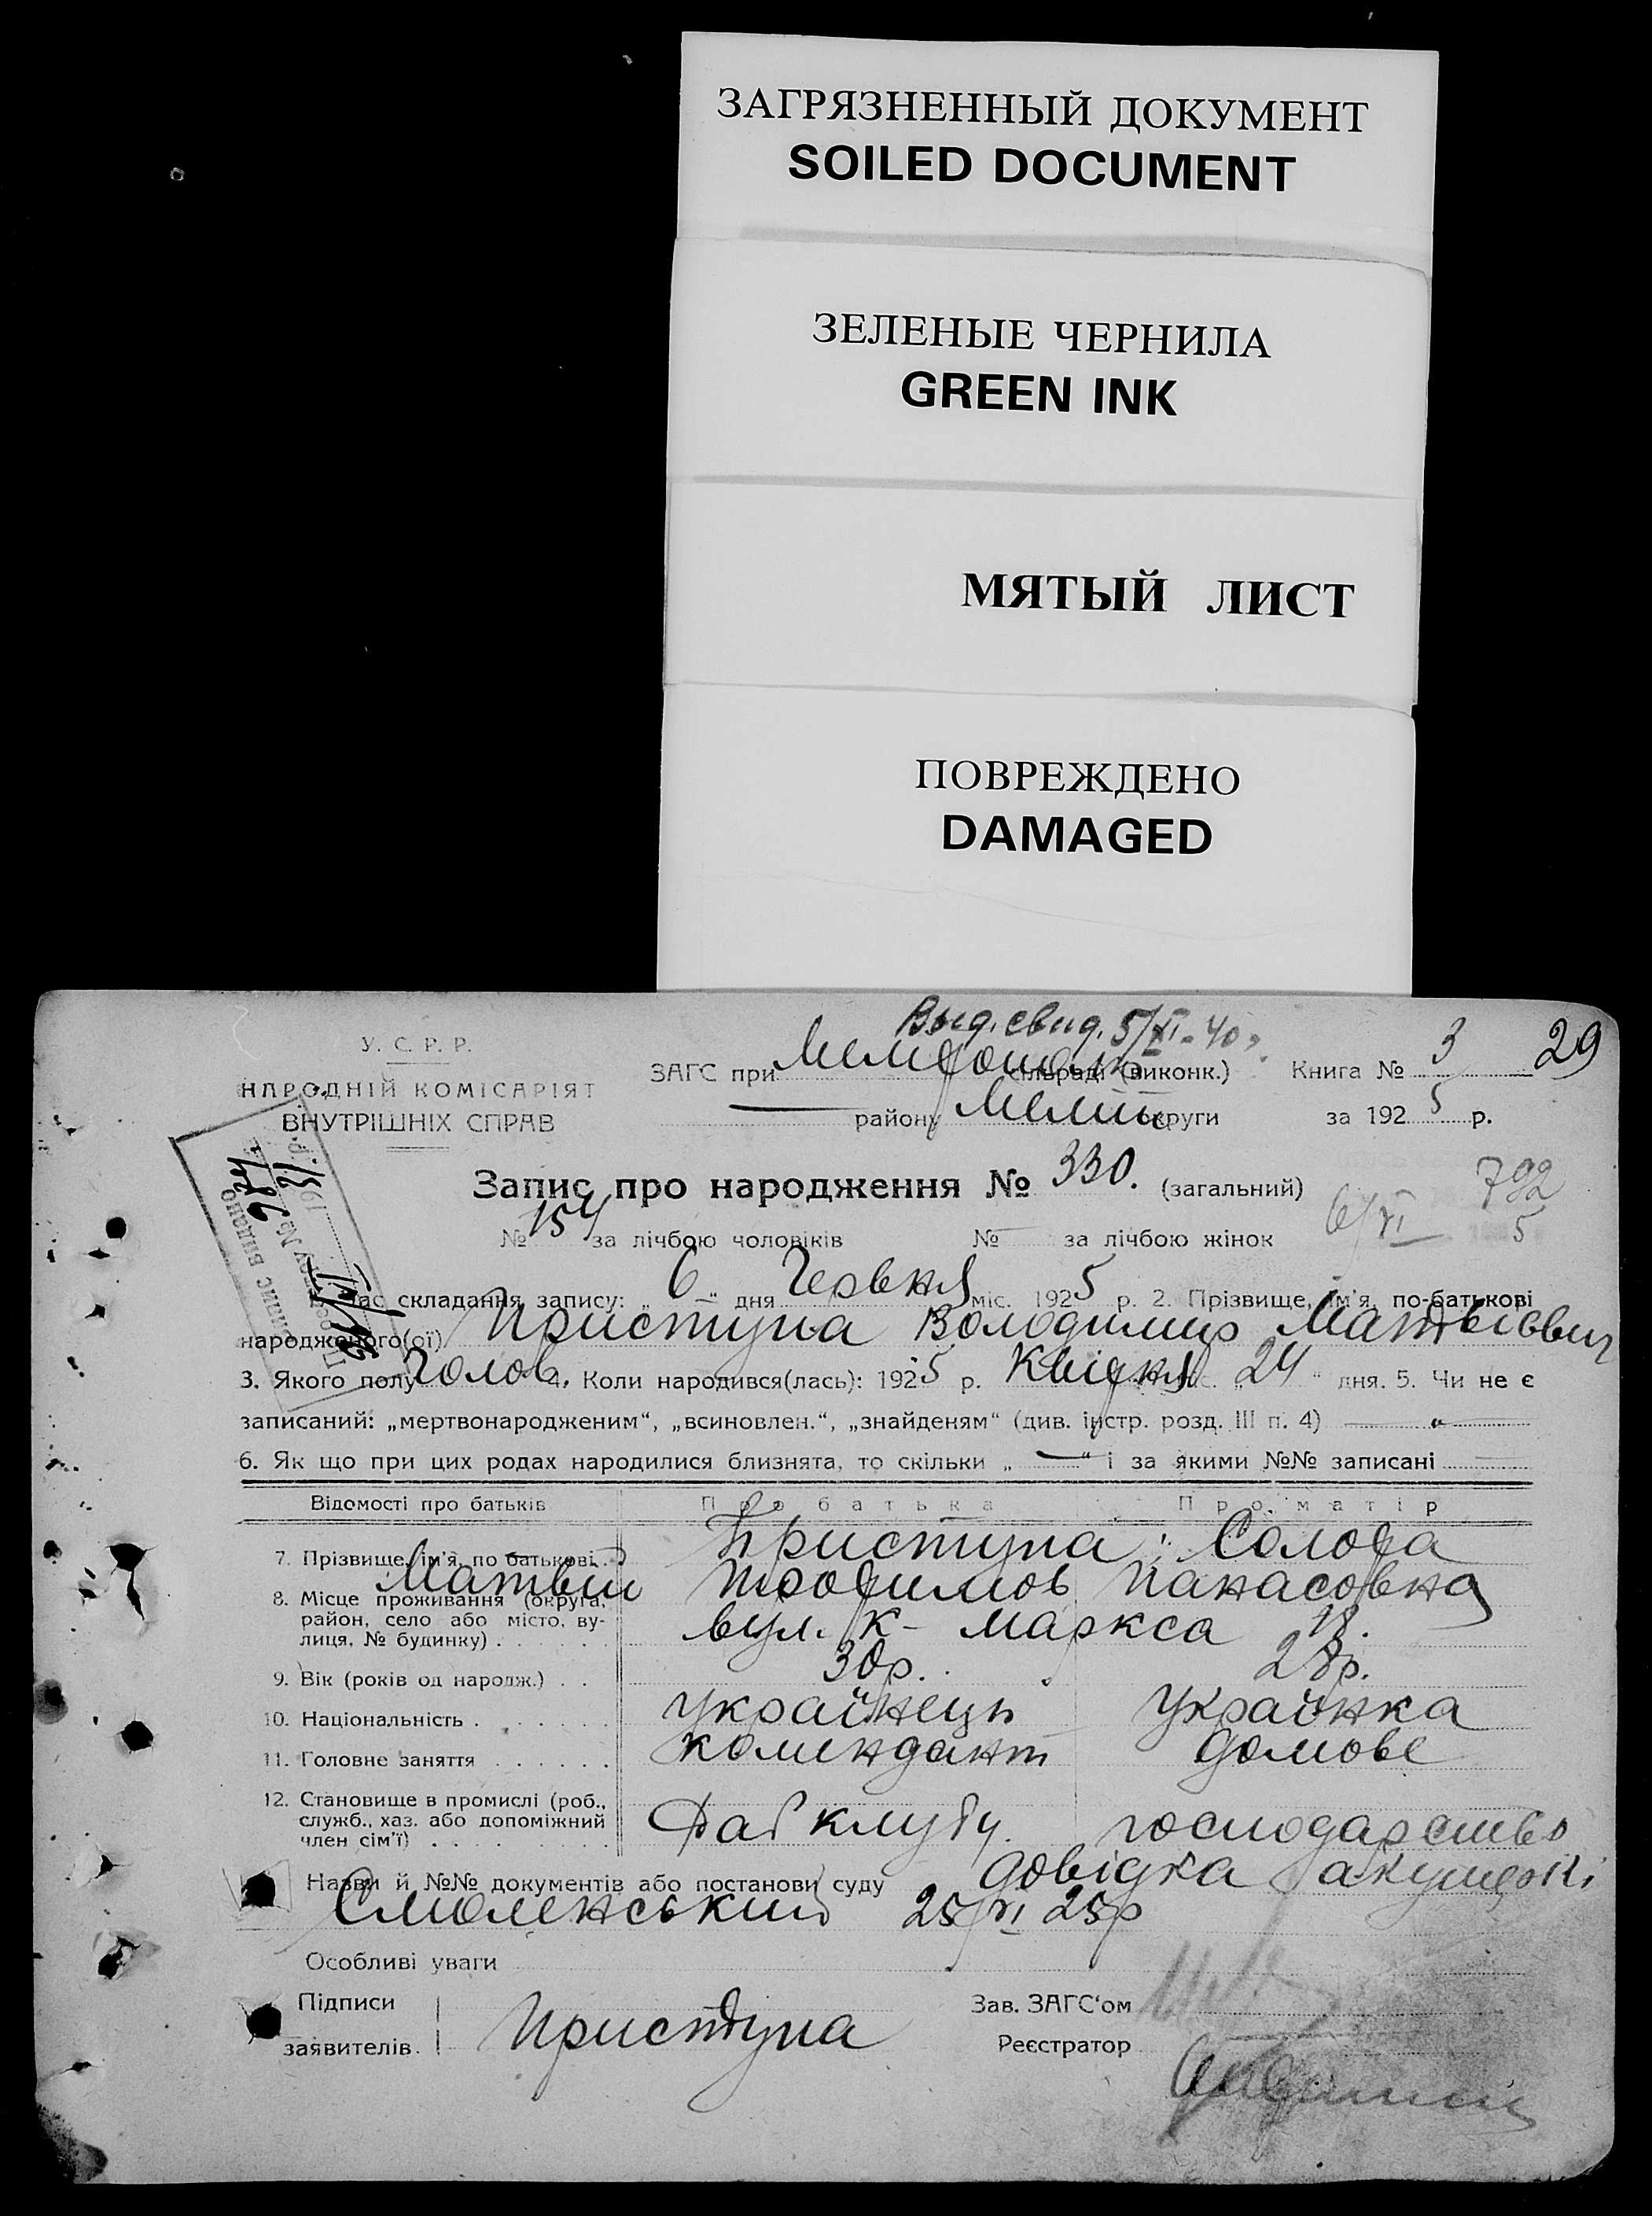 ЗАГРЯЗНЕННЫЙ ДОКУМЕНТ
SOILED DOCUMENT
ЗЕЛЕНЫЕ ЧЕРНИЛА
GREEN INK
МЯТЫЙ ЛИСТ
ПОВРЕЖДЕНО
DAMAGED
Выд. свид. 5/XI-40
У. С. Р. Р.
НАРОДНІЙ КОМІСАРІЯТ
ВНУТРІШНІХ СПРАВ
ЗАГС при сільраді (виконк.) Книга № 3 29
району Мелит округи за 1925 р.
Запис про народження № 330. (загальний) 792
№ 154 за лічбою чоловіків № за лічбою жінок 6/VI 5
Час складання запису: „6“ дня Червня міс. 1925 р. 2. Прізвище, ім'я, по-батькові
народженого(ої) Приступа Володимир Матвієвич
3. Якого полу Чолов. 4. Коли народився(лась): 1925 р. Квітня міс. „24“ дня. 5. Чи не є
записаний: „мертвонародженим“, „всиновлен.“, „знайденям“ (див. інстр. розд. III п. 4) — „ —
6. Як що при цих родах народилися близнята, то скільки „—“ і за якими №№ записані —
Відомості про батьків Про батька Про матір
7. Прізвище, ім'я, по батькові. . Приступа Солоха
Матвій Трофимов Панасовна
8. Місце проживання (округа,
район, село або місто, ву-
лиця, № будинку) . вул. К- Маркса 18.
9. Вік (років од народж.) . . 30р. 28р.
10. Національність . українець українка
11. Головне заняття комендант домове
12. Становище в промислі (роб.,
служб., хаз. або допоміжний
член сім'ї) . Рабклубу. господарство
Назви й №№ документів або постанови суду довідка акушерki
Смоленський 25/VI 25р
Особливі уваги
Підписи
заявителів. Приступа
Зав. ЗАГС'ом
Реєстратор